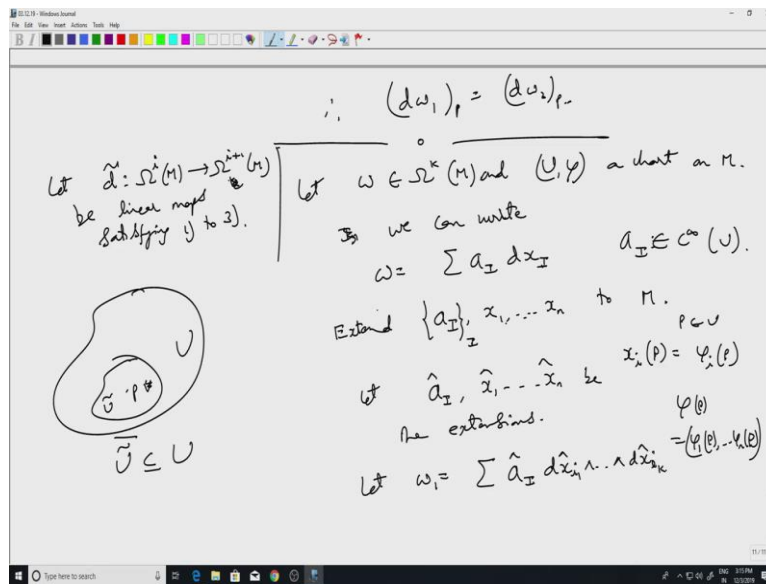 03.12.19 - Windows Journal
File Edit View Insert Actions Tools Help
∴ (dω₁)ₚ = (dω₂)ₚ.
Let d̃ : Ωⁱ(M) → Ωⁱ⁺¹(M)
be linear maps
satisfying 1) to 3).
Let ω ∈ Ωᵏ(M) and (U, φ) a chart on M.
we can write
ω = Σ a_I dx_I    a_I ∈ C^∞(U).
Extend {a_I}_I, x₁, .... xₙ to M.
p ∈ U
x_i(p) = φ_i(p)
Let â_I, x̂₁, .... x̂ₙ be
the extensions.
φ(p)
= (φ₁(p), .. φₙ(p))
Let ω₁ = Σ â_I dx̂_{i₁} ∧ .. ∧ dx̂_{i_k}
U
Ũ · p
\overline{Ũ} ⊆ U
11/11
Type here to search
ENG
IN
3:15 PM
12/3/2019